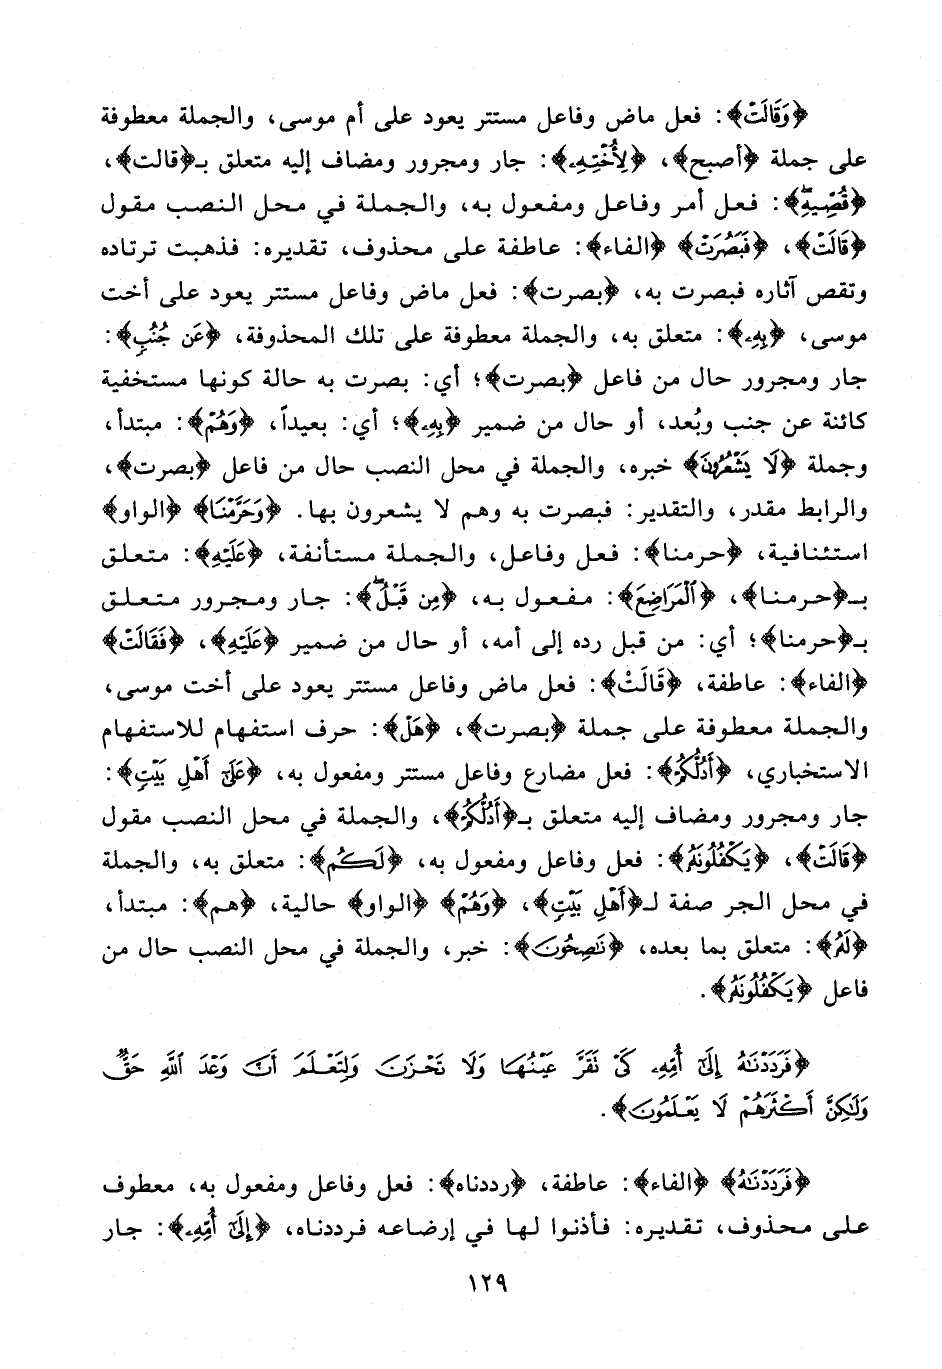 ﴿وَقَالَتْ﴾: فعل ماض وفاعل مستتر يعود على أم موسى، والجملة معطوفة
على جملة ﴿أصبح﴾، ﴿لِأُخْتِهِۦ﴾: جار ومجرور ومضاف إليه متعلق بـ﴿قالت﴾،
﴿قُصِّيهِۖ﴾: فعل أمر وفاعل ومفعول به، والجملة في محل النصب مقول
﴿قَالَتْ﴾، ﴿فَبَصُرَتْ﴾ ﴿الفاء﴾: عاطفة على محذوف، تقديره: فذهبت ترتاده
وتقص آثاره فبصرت به، ﴿بصرت﴾: فعل ماض وفاعل مستتر يعود على أخت
موسى، ﴿بِهِۦ﴾: متعلق به، والجملة معطوفة على تلك المحذوفة، ﴿عَن جُنُبٍ﴾:
جار ومجرور حال من فاعل ﴿بصرت﴾؛ أي: بصرت به حالة كونها مستخفية
كائنة عن جنب وبُعد، أو حال من ضمير ﴿بِهِۦ﴾؛ أي: بعيداً، ﴿وَهُمْ﴾: مبتدأ،
وجملة ﴿لَا يَشْعُرُونَ﴾ خبره، والجملة في محل النصب حال من فاعل ﴿بصرت﴾،
والرابط مقدر، والتقدير: فبصرت به وهم لا يشعرون بها. ﴿وَحَرَّمْنَا﴾ ﴿الواو﴾
استئنافية، ﴿حرمنا﴾: فعل وفاعل، والجملة مستأنفة، ﴿عَلَيْهِ﴾: متعلق
بـ﴿حرمنا﴾، ﴿ٱلْمَرَاضِعَ﴾: مفعول به، ﴿مِن قَبْلُ﴾: جار ومجرور متعلق
بـ﴿حرمنا﴾؛ أي: من قبل رده إلى أمه، أو حال من ضمير ﴿عَلَيْهِ﴾، ﴿فَقَالَتْ﴾
﴿الفاء﴾: عاطفة، ﴿قَالَتْ﴾: فعل ماض وفاعل مستتر يعود على أخت موسى،
والجملة معطوفة على جملة ﴿بصرت﴾، ﴿هَلْ﴾: حرف استفهام للاستفهام
الاستخباري، ﴿أَدُلُّكُمْ﴾: فعل مضارع وفاعل مستتر ومفعول به، ﴿عَلَىٰٓ أَهْلِ بَيْتٍ﴾:
جار ومجرور ومضاف إليه متعلق بـ﴿أَدُلُّكُمْ﴾، والجملة في محل النصب مقول
﴿قَالَتْ﴾، ﴿يَكْفُلُونَهُۥ﴾: فعل وفاعل ومفعول به، ﴿لَكُمْ﴾: متعلق به، والجملة
في محل الجر صفة لـ﴿أَهْلِ بَيْتٍ﴾، ﴿وَهُمْ﴾ ﴿الواو﴾ حالية، ﴿هم﴾: مبتدأ،
﴿لَهُۥ﴾: متعلق بما بعده، ﴿نَٰصِحُونَ﴾: خبر، والجملة في محل النصب حال من
فاعل ﴿يَكْفُلُونَهُۥ﴾.
﴿فَرَدَدْنَٰهُ إِلَىٰٓ أُمِّهِۦ كَىْ تَقَرَّ عَيْنُهَا وَلَا تَحْزَنَ وَلِتَعْلَمَ أَنَّ وَعْدَ ٱللَّهِ حَقٌّ
وَلَٰكِنَّ أَكْثَرَهُمْ لَا يَعْلَمُونَ﴾.
﴿فَرَدَدْنَٰهُ﴾ ﴿الفاء﴾: عاطفة، ﴿رددناه﴾: فعل وفاعل ومفعول به، معطوف
على محذوف، تقديره: فأذنوا لها في إرضاعه فرددناه، ﴿إِلَىٰٓ أُمِّهِۦ﴾: جار
١٢٩